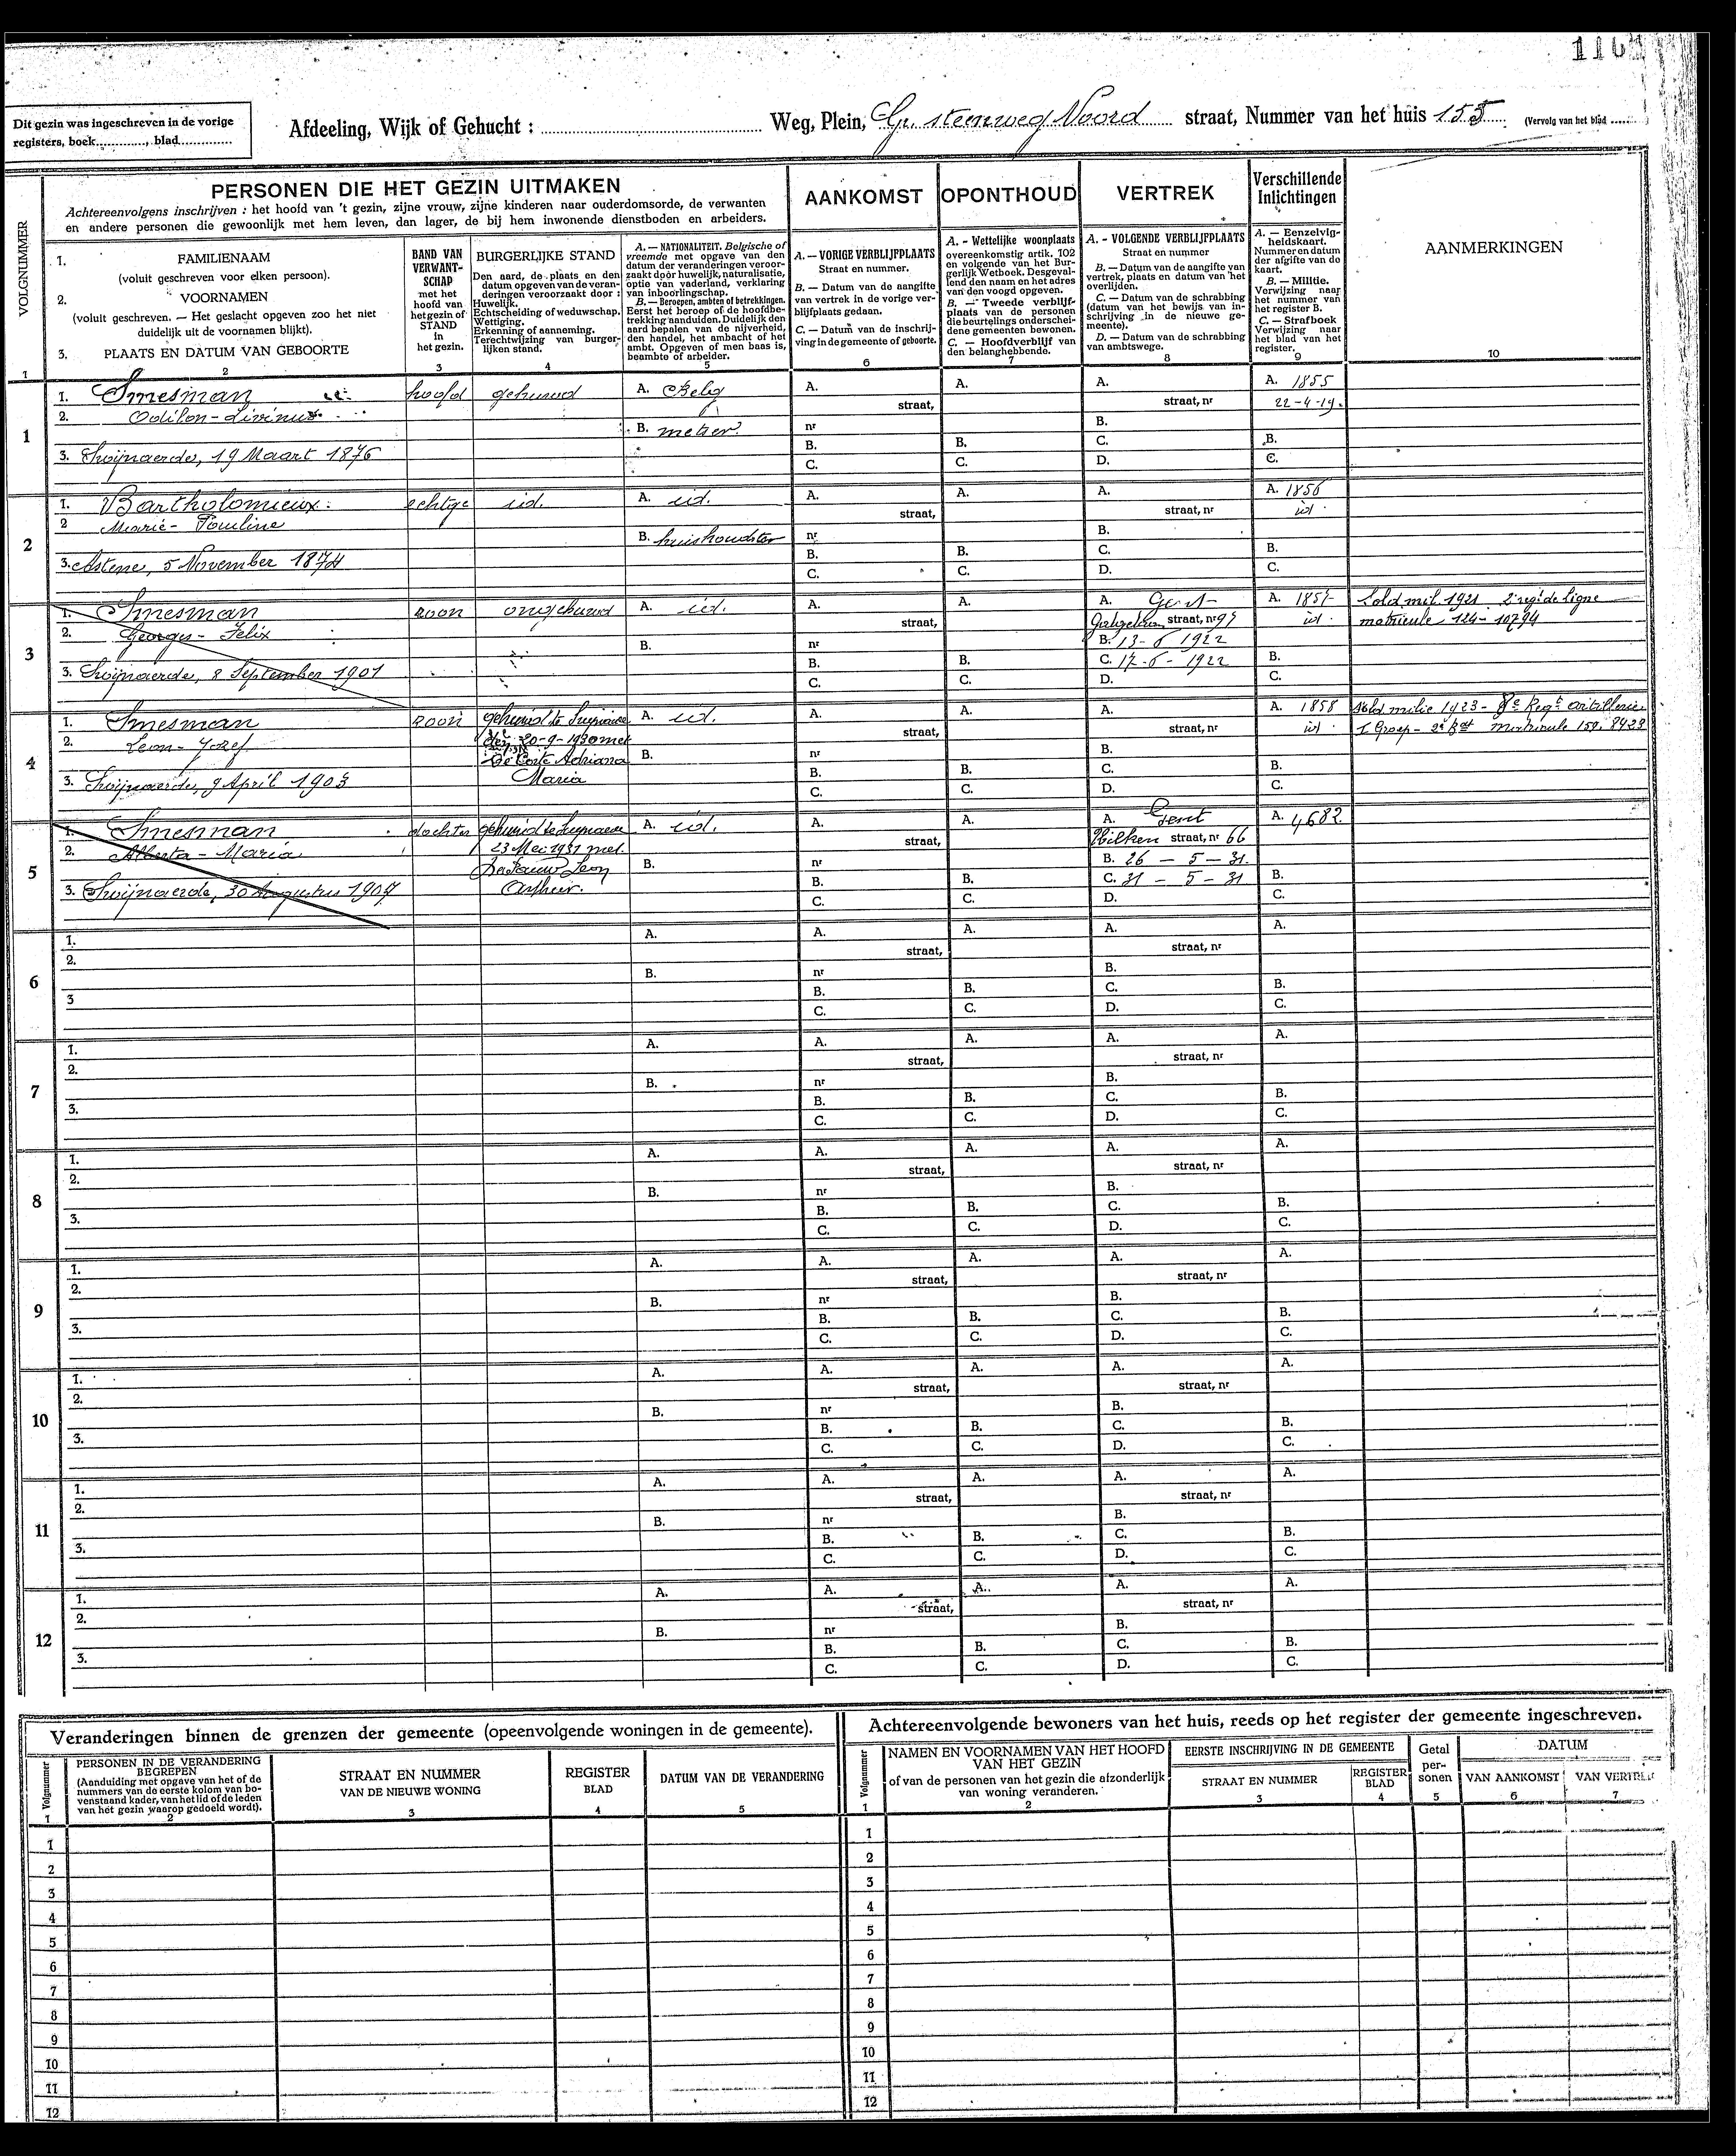 Dit gezin was ingeschreven in de vorige
registers, boek............, blad..............
Afdeeling, Wijk of Gehucht : Weg, Plein, Gr. steenweg Noord straat, Nummer van het huis 155 (Vervolg van het blad
VOLGNUMMER
PERSONEN DIE HET GEZIN UITMAKEN
Achtereenvolgens inschrijven : het hoofd van 't gezin, zijne vrouw, zijne kinderen naar ouderdomsorde, de verwanten
en andere personen die gewoonlijk met hem leven, dan lager, de bij hem inwonende dienstboden en arbeiders.
1. FAMILIENAAM
(voluit geschreven voor elken persoon).
2. VOORNAMEN
(voluit geschreven. — Het geslacht opgeven zoo het niet
duidelijk uit de voornamen blijkt).
3. PLAATS EN DATUM VAN GEBOORTE
BAND VAN
VERWANT-
SCHAP
met het
hoofd van
het gezin of
STAND
in
het gezin.
BURGERLIJKE STAND
Den aard, de plaats en den
datum opgeven van de veran-
deringen veroorzaakt door :
Huwelijk.
Echtscheiding of weduwschap.
Wettiging.
Erkenning of aanneming.
Terechtwijzing van burger-
lijken stand.
A. — NATIONALITEIT. Belgische of
vreemde met opgave van den
datum der veranderingen veroor-
zaakt door huwelijk, naturalisatie,
optie van vaderland, verklaring
van inboorlingschap.
B. — Beroepen, ambten of betrekkingen.
Eerst het beroep of de hoofdbe-
trekking aanduiden. Duidelijk den
aard bepalen van de nijverheid,
den handel, het ambacht of het
ambt. Opgeven of men baas is,
beambte of arbeider.
AANKOMST
A. — VORIGE VERBLIJFPLAATS
Straat en nummer.
B. — Datum van de aangifte
van vertrek in de vorige ver-
blijfplaats gedaan.
C. — Datum van de inschrij-
ving in de gemeente of geboorte.
OPONTHOUD
A. - Wettelijke woonplaats
overeenkomstig artik. 102
en volgende van het Bur-
gerlijk Wetboek. Desgeval-
lend den naam en het adres
van den voogd opgeven.
B. — Tweede verblijf-
plaats van de personen
die beurtelings onderschei-
dene gemeenten bewonen.
C. — Hoofdverblijf van
den belanghebbende.
VERTREK
A. - VOLGENDE VERBLIJFPLAATS
Straat en nummer
B. — Datum van de aangifte van
vertrek, plaats en datum van het
overlijden.
C. — Datum van de schrabbing
(datum van het bewijs van in-
schrijving in de nieuwe ge-
meente).
D. — Datum van de schrabbing
van ambtswege.
Verschillende
Inlichtingen
A. — Eenzelvig-
heidskaart.
Nummer en datum
der afgifte van de
kaart.
B. — Militie.
Verwijzing naar
het nummer van
het register B.
C. — Strafboek
Verwijzing naar
het blad van het
register.
AANMERKINGEN
1 2 3 4 5 6 7 8 9 10
1
1. Smesman hoofd gehuwd A. Belg A. straat, A. A. straat, nr A. 1855
2. Odilon-Livinus 22-4-19.
B. metser. nr B. B.
3. Swijnaerde, 19 Maart 1876 B. C. B. C. C. D. B. C.
2
1. Bartholomieux echtge id. A. id. A. straat, A. A. straat, nr A. 1856
2 Marie-Pauline id.
B. huishoudster nr B.
3. Astene, 5 November 1874 B. C. B. C. C. D. B. C.
3
1. Smesman zoon ongehuwd A. id. A. straat, A. A. Gent A. 1857 Sold. mil. 1921 2e regt de ligne
2. Georges-Felix straat, nr 97 id. matricule 124-10794
B. nr B. 13-6 1922
3. Swijnaerde, 8 September 1901 B. C. B. C. C. 17-6-1922 D. B. C.
4
1. Smesman zoon gehuwd te A. id. A. straat, A. A. straat, nr A. 1858 Sold milie 1923 - 8e Regt artillerie
2. Leon-Jozef den 20-9-1930 met id. I Groep - 2e Bat matricule 159.8423
De Corte Adriana B. nr B.
3. Swijnaerde, 9 April 1903 Maria B. C. B. C. C. D. B. C.
5
1. Smesman dochter gehuwd te A. id. A. straat, A. A. Gent A. 4682
2. Alberta-Maria 23 Mei 1931 met straat, nr 66
De Pauw Leon B. nr B. 26 - 5 - 31.
3. Swijnaerde, 30 Augustus 1907 Arthur. B. C. B. C. C. 31 - 5 - 31 D. B. C.
6
1. A. A. straat, A. A. straat, nr A.
2. B. nr B.
3 B. C. B. C. C. D. B. C.
7
1. A. A. straat, A. A. straat, nr A.
2. B. nr B.
3. B. C. B. C. C. D. B. C.
8
1. A. A. straat, A. A. straat, nr A.
2. B. nr B.
3. B. C. B. C. C. D. B. C.
9
1. A. A. straat, A. A. straat, nr A.
2. B. nr B.
3. B. C. B. C. C. D. B. C.
10
1. A. A. straat, A. A. straat, nr A.
2. B. nr B.
3. B. C. B. C. C. D. B. C.
11
1. A. A. straat, A. A. straat, nr A.
2. B. nr B.
3. B. C. B. C. C. D. B. C.
12
1. A. A. straat, A. A. straat, nr A.
2. B. nr B.
3. B. C. B. C. C. D. B. C.
Veranderingen binnen de grenzen der gemeente (opeenvolgende woningen in de gemeente).
Volgnummer
PERSONEN IN DE VERANDERING
BEGREPEN
(Aanduiding met opgave van het of de
nummers van de eerste kolom van bo-
venstaand kader, van het lid of de leden
van het gezin waarop gedoeld wordt).
STRAAT EN NUMMER
VAN DE NIEUWE WONING
REGISTER
BLAD
DATUM VAN DE VERANDERING
1 2 3 4 5
1
2
3
4
5
6
7
8
9
10
11
12
Achtereenvolgende bewoners van het huis, reeds op het register der gemeente ingeschreven.
Volgnummer
NAMEN EN VOORNAMEN VAN HET HOOFD
VAN HET GEZIN
of van de personen van het gezin die afzonderlijk
van woning veranderen.
EERSTE INSCHRIJVING IN DE GEMEENTE
STRAAT EN NUMMER
REGISTER
BLAD
Getal
per-
sonen
DATUM
VAN AANKOMST VAN VERTREK
1 2 3 4 5 6 7
1
2
3
4
5
6
7
8
9
10
11
12